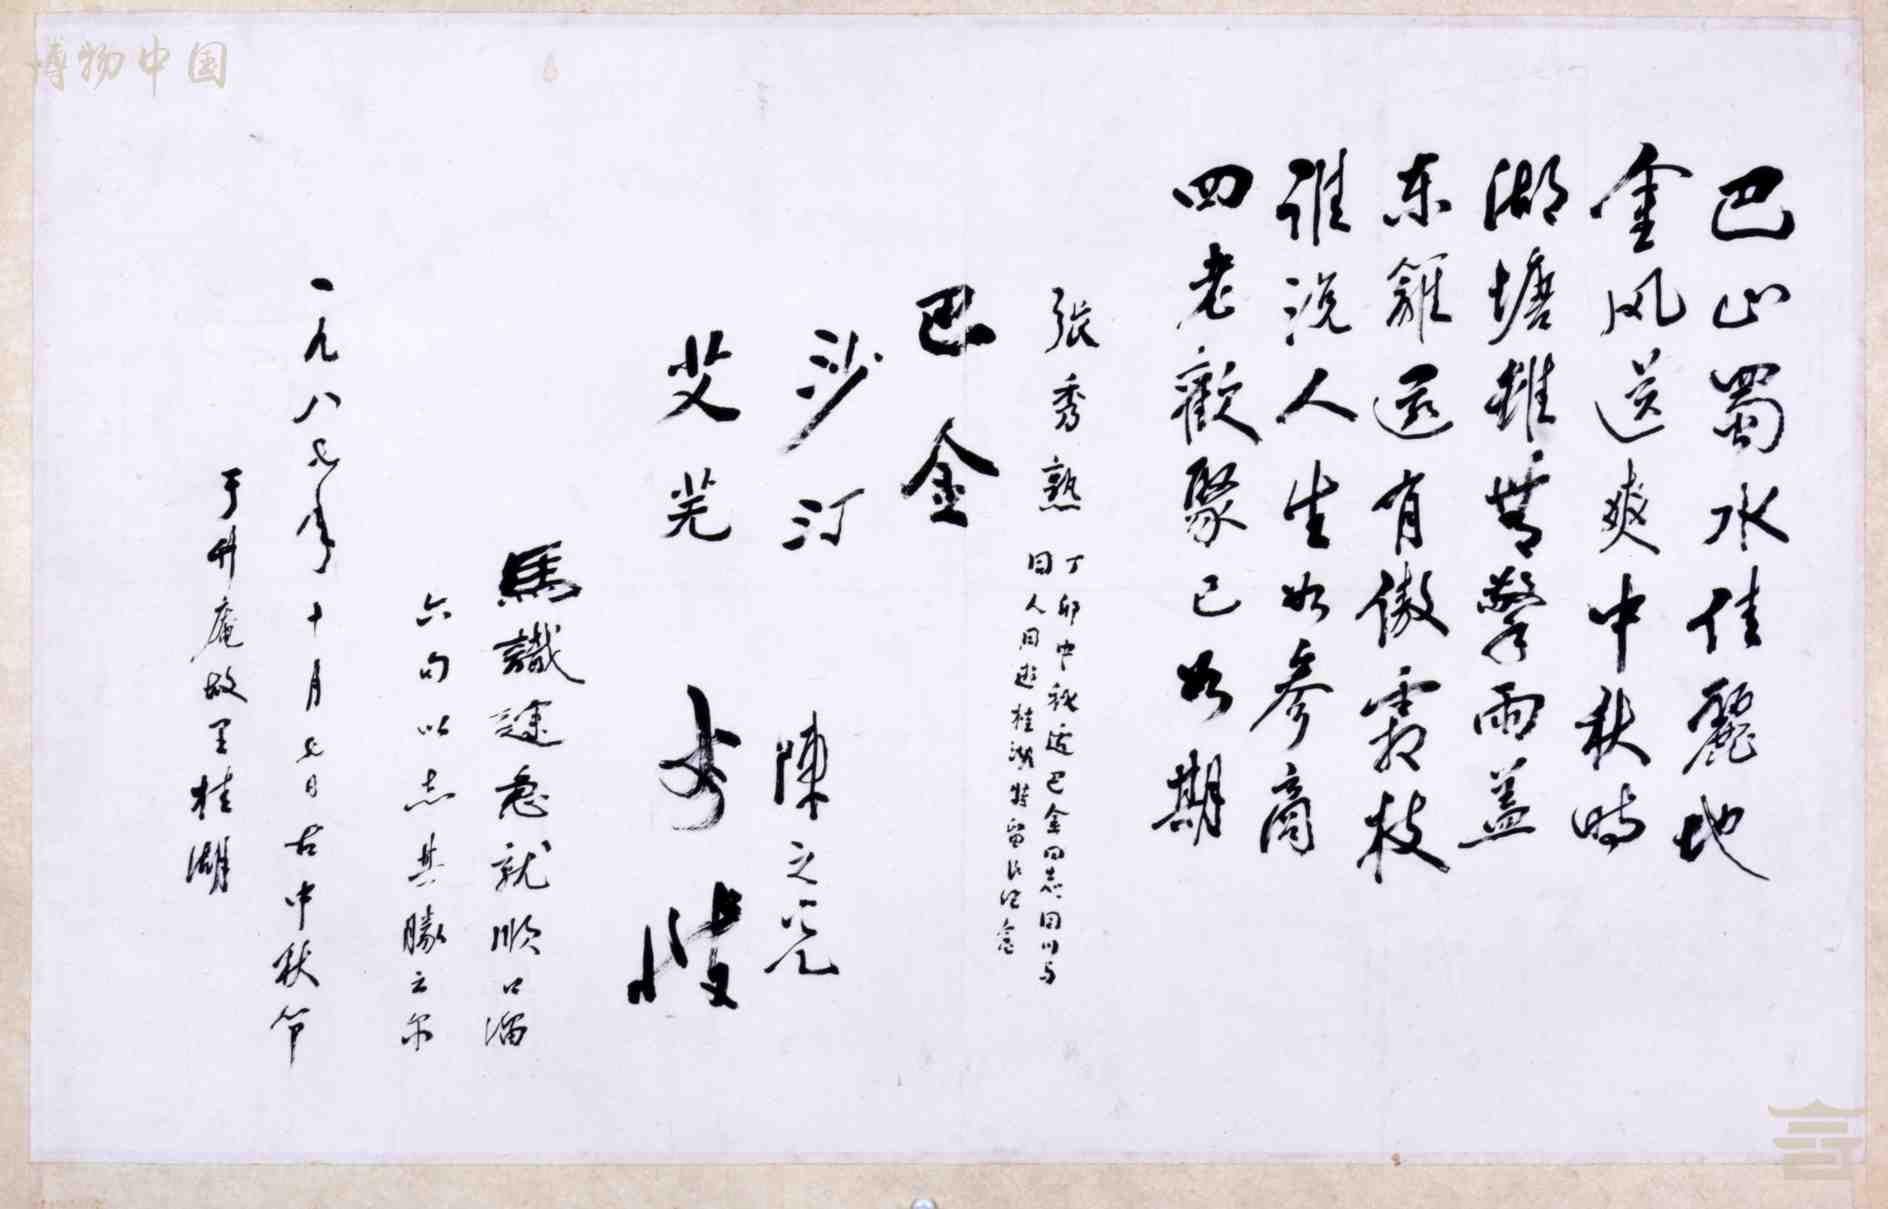 巴山蜀水佳麗地
金风送爽中秋时
湖塘雖無擎雨盖
东籬还有傲霜枝
谁说人生如参商
四老歡聚已如期
張秀熟
丁卯中秋適巴金同志回川与
同人同遊桂湖特留此纪念
巴金
沙汀
陳之光
艾芜
李致
馬識途急就順口溜
六句以志其勝云尔
一九八七年十月七日古中秋节
于升庵故里桂湖
博物中国